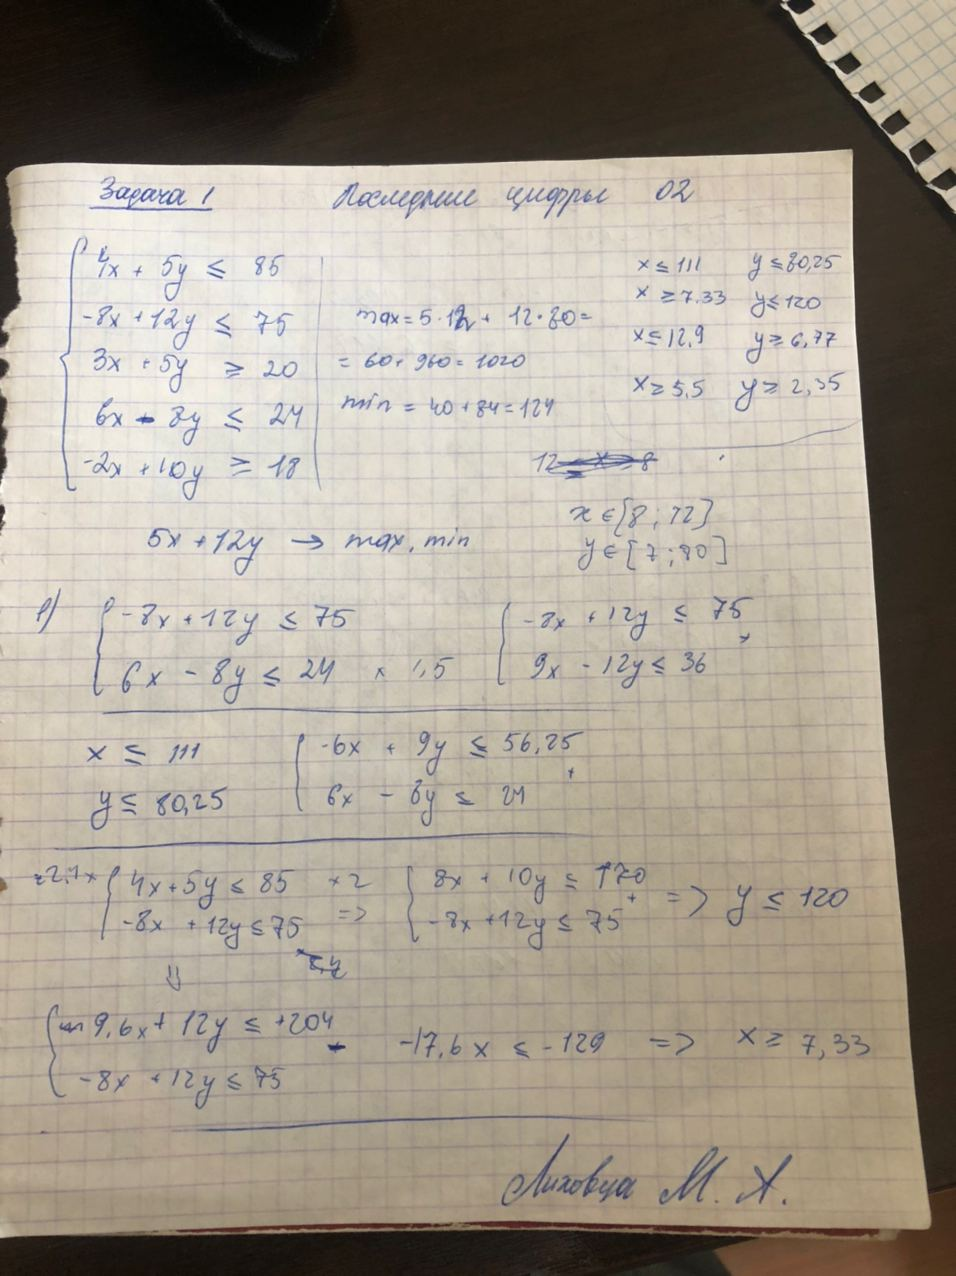 Задача 1 Последние цифры 02
4x + 5y ≤ 85
-8x + 12y ≤ 75
3x + 5y ≥ 20
6x - 8y ≤ 24
-2x + 10y ≥ 18
max = 5·12 + 12·80 =
= 60 + 960 = 1020
min = 40 + 84 = 124
x ≤ 111 y ≤ 80,25
x ≥ 7,33 y ≤ 120
x ≤ 12,9 y ≥ 6,77
x ≥ 5,5 y ≥ 2,35
x ∈ [8; 12]
y ∈ [7; 80]
5x + 12y → max, min
1) -8x + 12y ≤ 75
6x - 8y ≤ 24 × 1,5
-8x + 12y ≤ 75
+
9x - 12y ≤ 36
x ≤ 111
y ≤ 80,25
-6x + 9y ≤ 56,25
+
6x - 8y ≤ 24
4x + 5y ≤ 85 ×2
-8x + 12y ≤ 75 =>
8x + 10y ≤ 170
+
-8x + 12y ≤ 75
=> y ≤ 120
⇓
9,6x + 12y ≤ +204
-
-8x + 12y ≤ 75
-17,6x ≤ -129 => x ≥ 7,33
М. А.